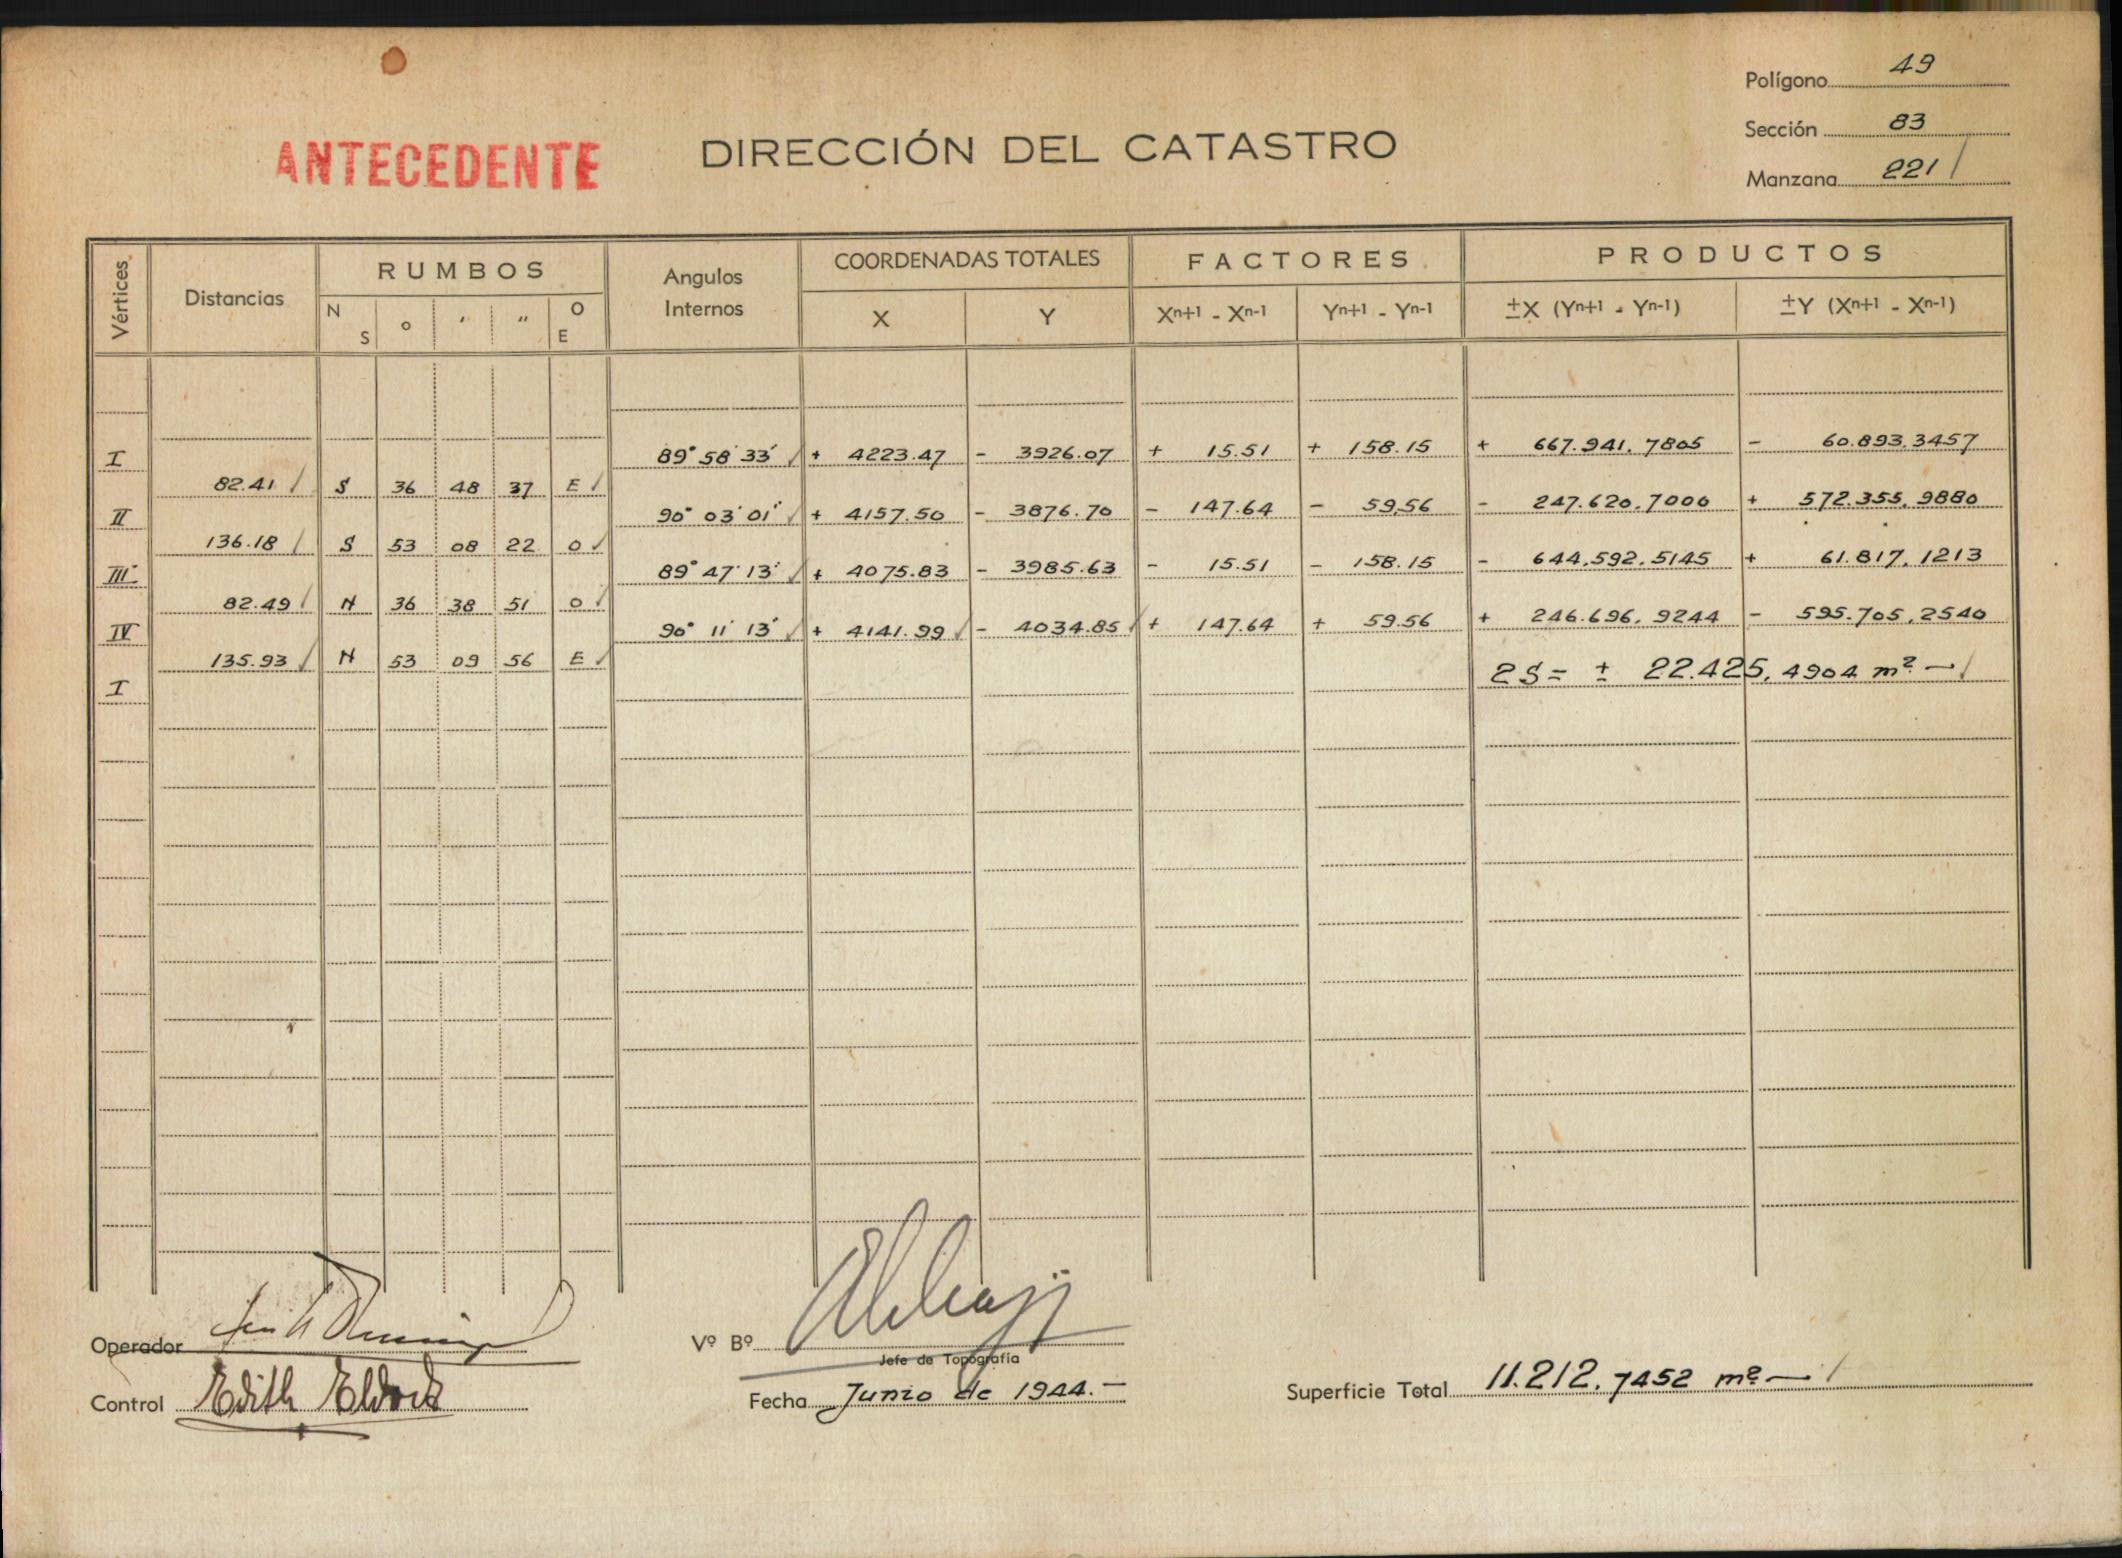 Polígono 49
Sección 83
Manzana 221
ANTECEDENTE
DIRECCIÓN DEL CATASTRO
Vértices Distancias RUMBOS Angulos Internos COORDENADAS TOTALES FACTORES PRODUCTOS
N S ° ' " O E X Y Xⁿ⁺¹ - Xⁿ⁻¹ Yⁿ⁺¹ - Yⁿ⁻¹ ±X (Yⁿ⁺¹ - Yⁿ⁻¹) ±Y (Xⁿ⁺¹ - Xⁿ⁻¹)
I 89° 58' 33" + 4223.47 - 3926.07 + 15.51 + 158.15 + 667.941.7805 - 60.893.3457
82.41 S 36 48 37 E
II 90° 03' 01" + 4157.50 - 3876.70 - 147.64 - 59.56 - 247.620.7000 + 572.355.9880
136.18 S 53 08 22 O
III 89° 47' 13" + 4075.83 - 3985.63 - 15.51 - 158.15 - 644.592.5145 + 61.817.1213
82.49 N 36 38 51 O
IV 90° 11' 13" + 4141.99 - 4034.85 + 147.64 + 59.56 + 246.696.9244 - 595.705.2540
135.93 N 53 09 56 E
2S = ± 22.425,4904 m² —
I
Operador
Vº Bº
Jefe de Topografía
Control Edith
Fecha Junio de 1944.—
Superficie Total 11.212,7452 m² —